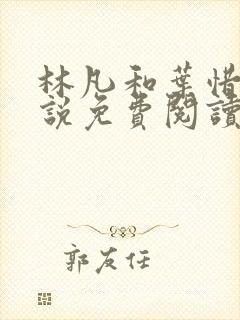 林凡和葉惜
説免費閱讀
郭友任